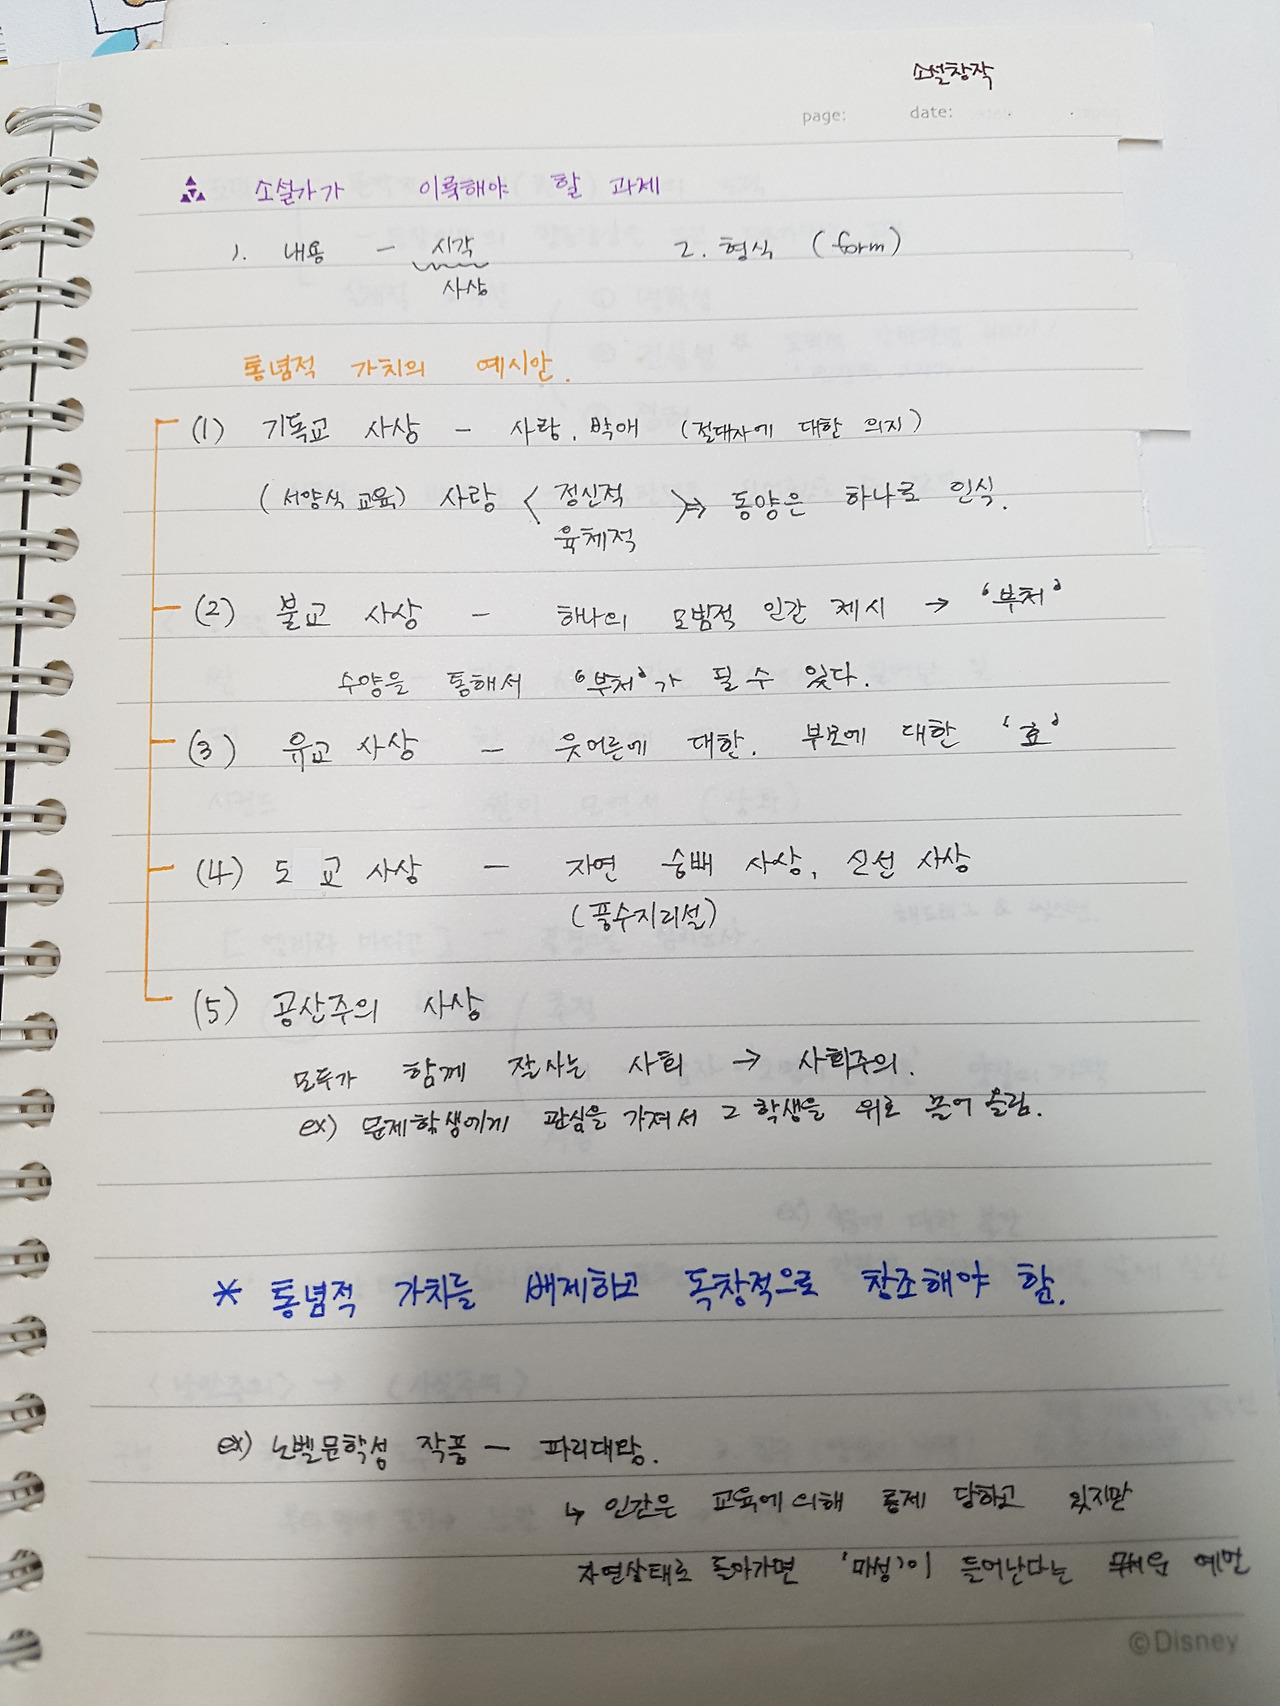 소설창작
page: date:
소설가가 이룩해야 할 과제
1. 내용 - 시각 2. 형식 (form)
사상
통념적 가치의 예시안.
(1) 기독교 사상 - 사랑, 박애 (절대자에 대한 의지)
(서양식 교육) 사랑 < 정신적 >→ 동양은 하나로 인식.
육체적
(2) 불교 사상 - 하나의 모범적 인간 제시 → '부처'
수양을 통해서 '부처'가 될 수 있다.
(3) 유교 사상 - 웃어른에 대한. 부모에 대한 '효'
(4) 도교 사상 - 자연 숭배 사상, 신선 사상
(풍수지리설)
(5) 공산주의 사상
모두가 함께 잘사는 사회 → 사회주의.
ex) 문제학생에게 관심을 가져서 그 학생을 위로 끌어 올림.
* 통념적 가치를 배제하고 독창적으로 창조해야 함.
ex) 노벨문학성 작품 - 파리대왕.
↳ 인간은 교육에 의해 통제 당하고 있지만
자연상태로 돌아가면 '마성'이 들어난다는
©Disney